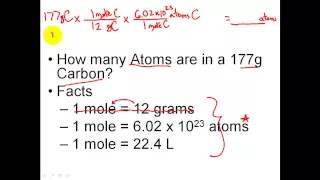 177gC x 1 mole C / 12 gC x 6.02 x 10^23 atoms C / 1 mole C = ______ atoms
• How many Atoms are in a 177g
Carbon?
• Facts
– 1 mole = 12 grams
– 1 mole = 6.02 x 10^23 atoms
– 1 mole = 22.4 L